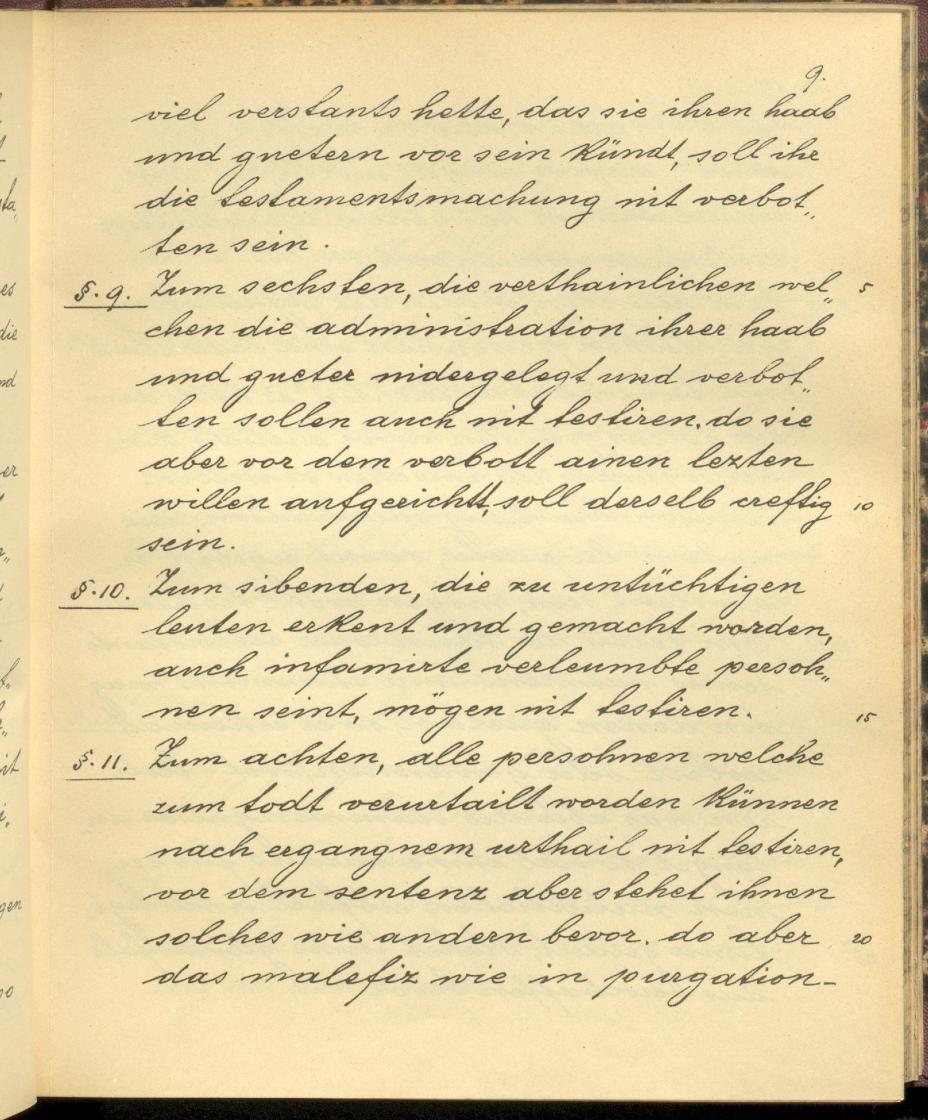 9.
viel verstants hette, das sie ihren haab
und guetern vor sein kündt, soll ihr
die testamentsmachung nit verbot„
ten sein.
§. 9. Zum sechsten, die verthainlichen wel„ 5
chen die administration ihrer haab
und gueter nidergelegt und verbot„
ten sollen auch nit testiren. do sie
aber vor dem verbott ainen lezten
willen aufgerichtt, soll derselb creftig 10
sein.
§. 10. Zum sibenden, die zu untüchtigen
leuten erkent und gemacht worden,
auch infamirte verleumbte persoh„
nen seint, mögen nit testiren. 15
§. 11. Zum achten, alle persohnen welche
zum todt verurtailt worden künnen
nach ergangnem urthail nit testiren,
vor dem sentenz aber stehet ihnen
solches wie andern bevor. do aber 20
das malefiz wie in purgation-